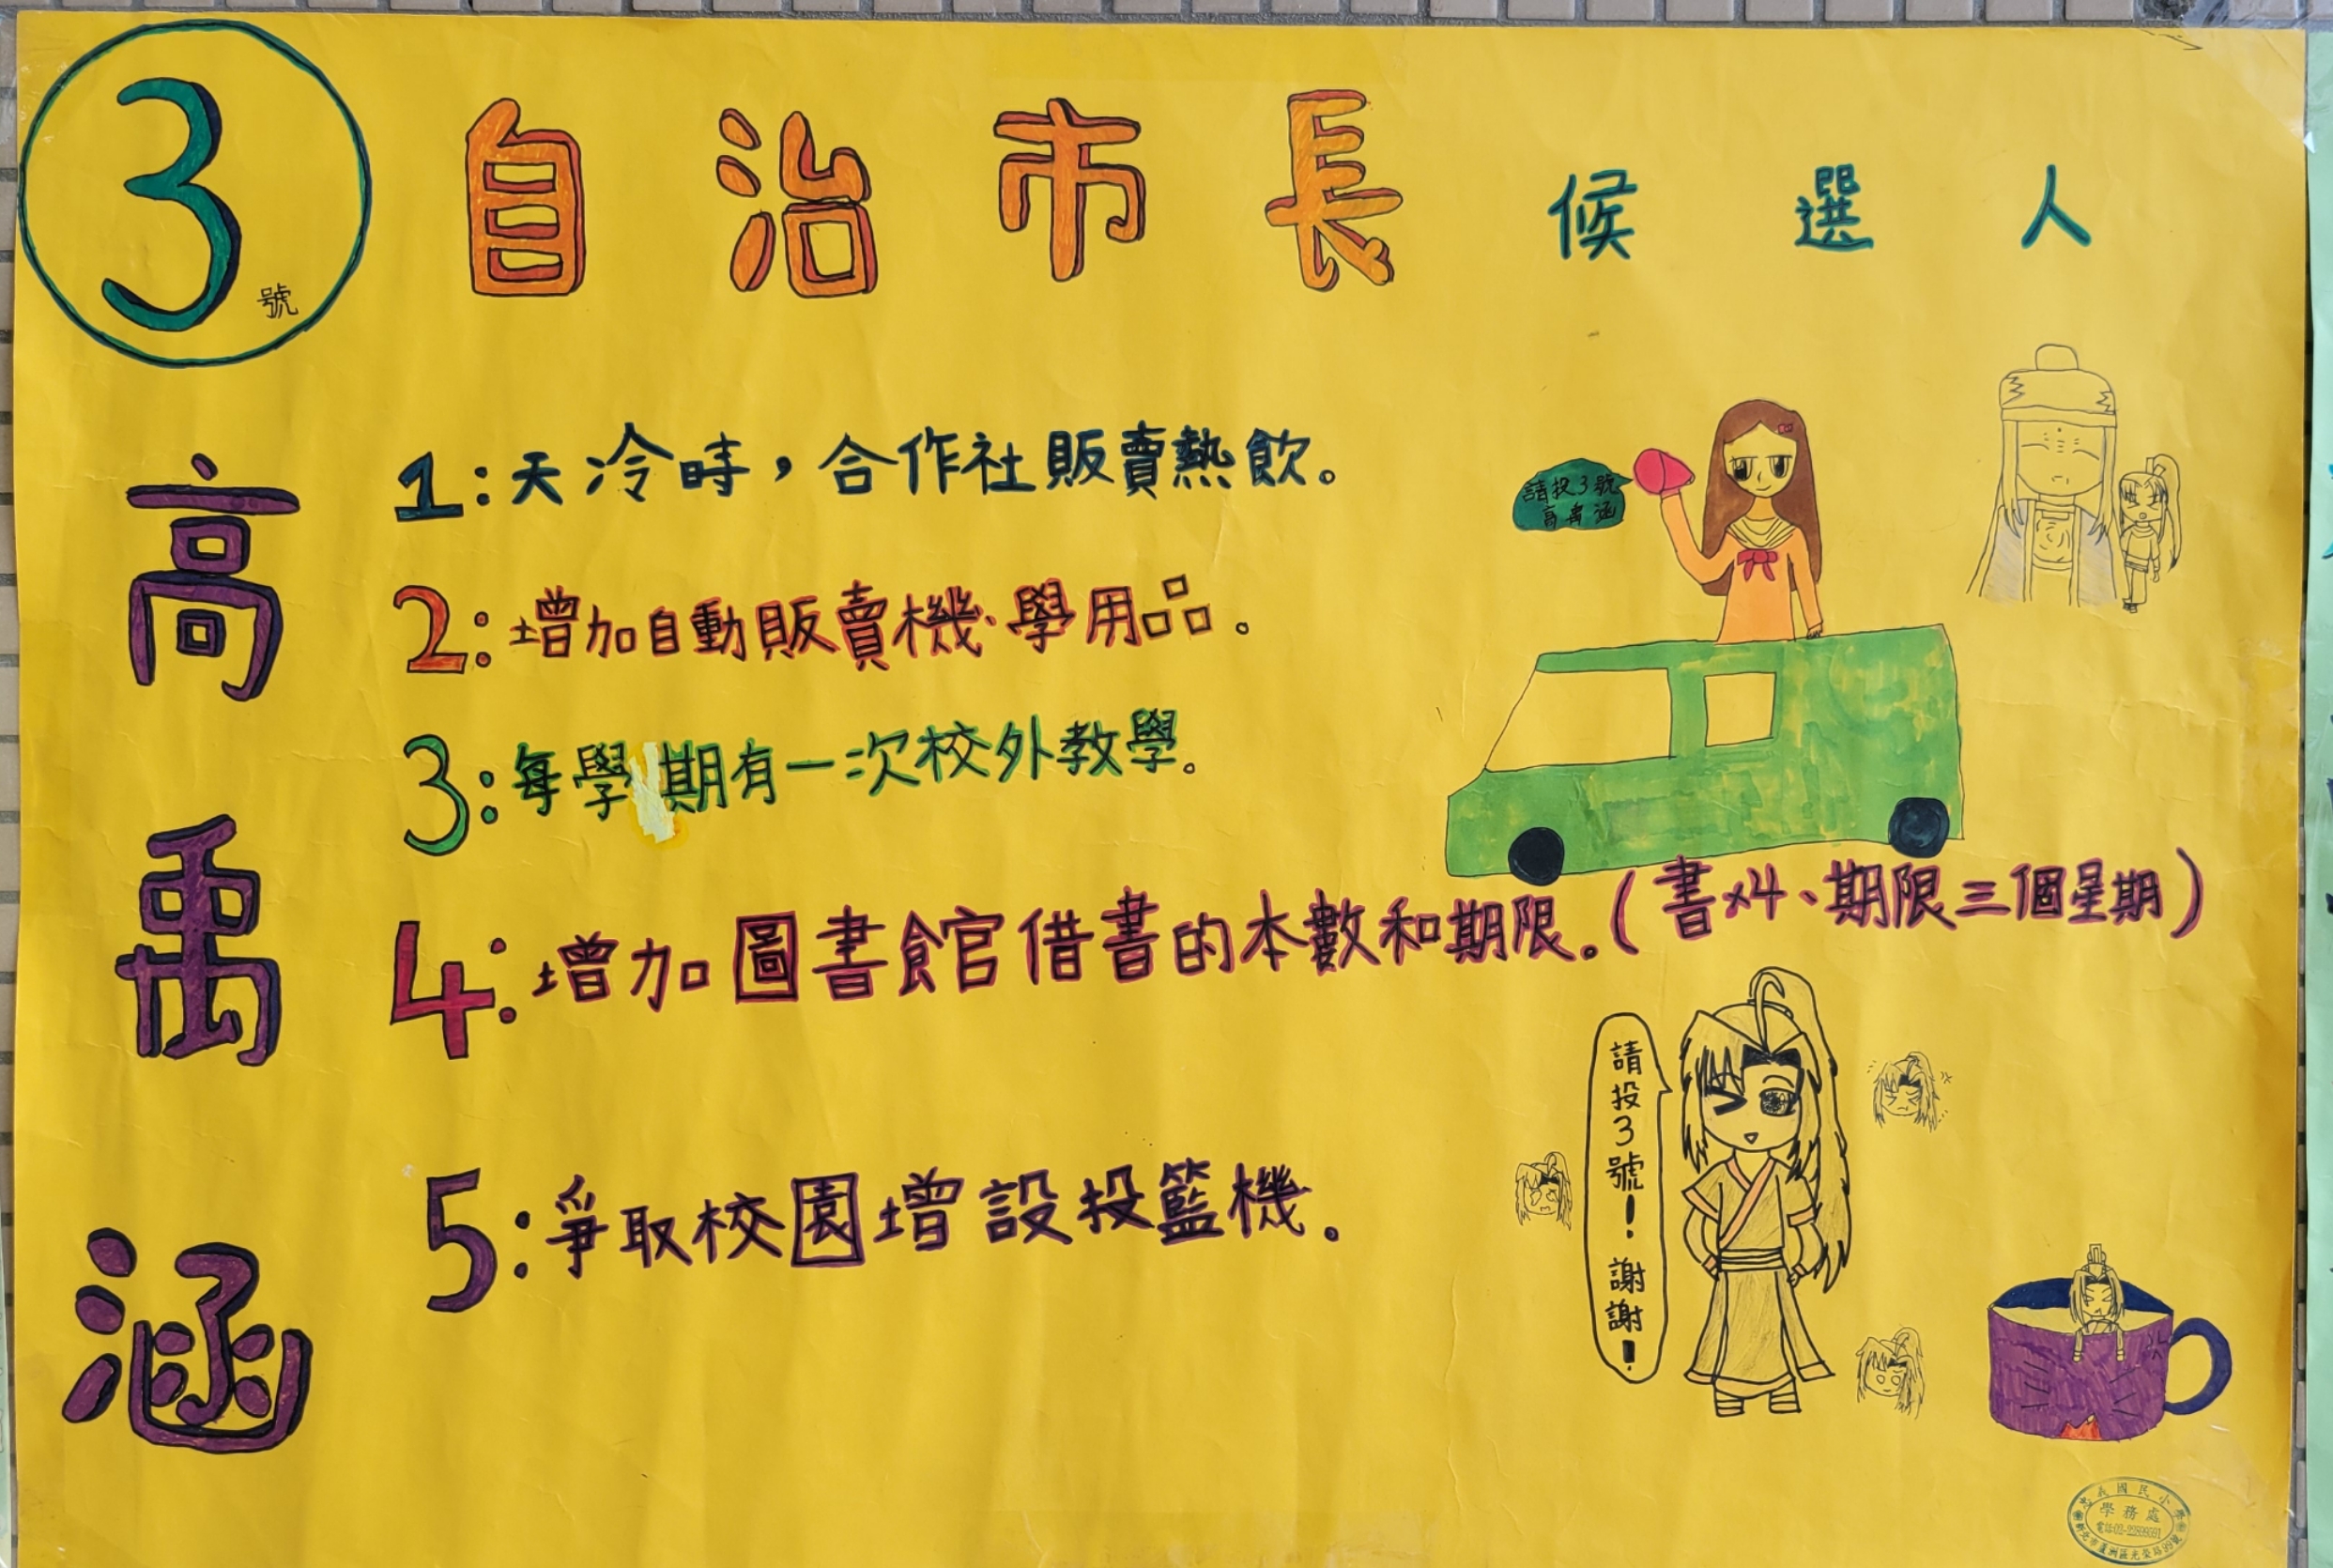 3號
自治市長 候選人
高禹涵
1:天冷時，合作社販賣熱飲。
2:增加自動販賣機、學用品。
3:每學期有一次校外教學。
4:增加圖書館借書的本數和期限。(書x4、期限三個星期)
5:爭取校園增設投籃機。
請投3號
高禹涵
請投3號！謝謝！
忠義國民小學
學務處
電話:02-22899591
新北市蘆洲區光榮路99號